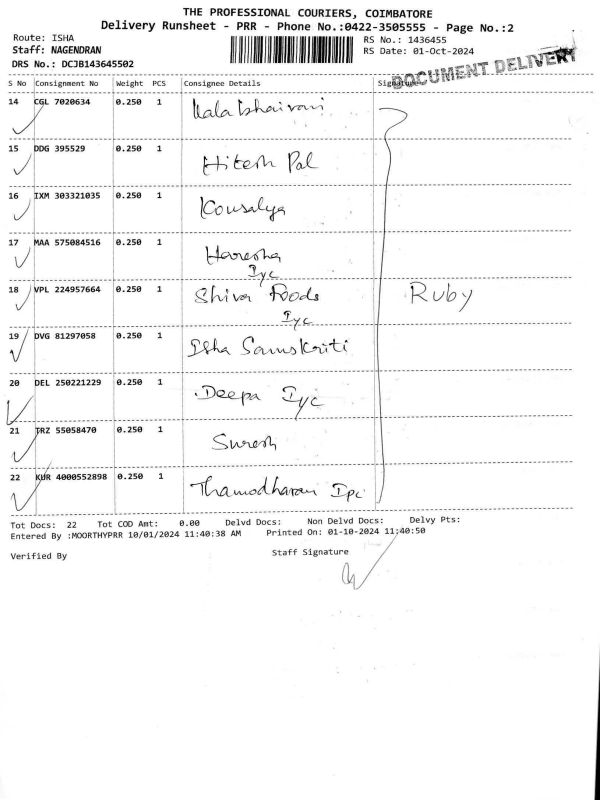 THE PROFESSIONAL COURIERS, COIMBATORE
Delivery Runsheet - PRR - Phone No.:0422-3505555 - Page No.:2
Route: ISHA RS No.: 1436455
Staff: NAGENDRAN RS Date: 01-Oct-2024
DRS No.: DCJB143645502
DOCUMENT DELIVERY
S No Consignment No Weight PCS Consignee Details Signature
14 CGL 7020634 0.250 1 Kalabhairavi
15 DDG 395529 0.250 1 Hitesh Pal
16 IXM 303321035 0.250 1 Kousalya
17 MAA 575084516 0.250 1 Haresha
Iyc
18 VPL 224957664 0.250 1 Shiva Foods Ruby
Iyc
19 DVG 81297058 0.250 1 Isha Samskriti
20 DEL 250221229 0.250 1 Deepa Iyc
21 TRZ 55058470 0.250 1 Suresh
22 KUR 4000552898 0.250 1 Thamodharan Ipc
Tot Docs: 22 Tot COD Amt: 0.00 Delvd Docs: Non Delvd Docs: Delvy Pts:
Entered By :MOORTHYPRR 10/01/2024 11:40:38 AM Printed On: 01-10-2024 11:40:50
Verified By Staff Signature